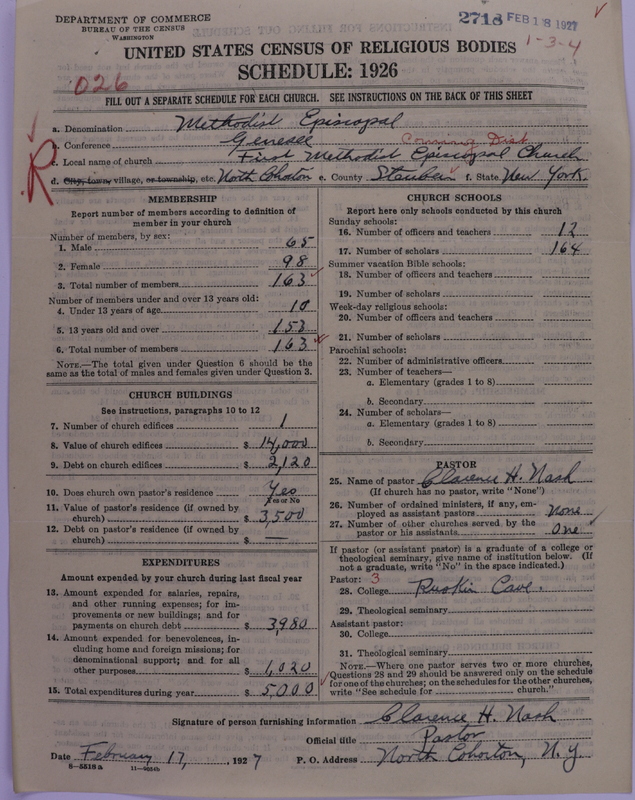 DEPARTMENT OF COMMERCE
BUREAU OF THE CENSUS
WASHINGTON
2718 FEB 18 1927
1-3-4
UNITED STATES CENSUS OF RELIGIOUS BODIES
SCHEDULE: 1926
026
FILL OUT A SEPARATE SCHEDULE FOR EACH CHURCH. SEE INSTRUCTIONS ON THE BACK OF THIS SHEET
a. Denomination Methodist Episcopal
b. Conference Genesee Corning Dist.
c. Local name of church First Methodist Episcopal Church
R
d. City, town, village, or township, etc. North Cohocton e. County Steuben f. State New York.
MEMBERSHIP
Report number of members according to definition of member in your church
Number of members, by sex:
1. Male 65
2. Female 98
3. Total number of members 163
Number of members under and over 13 years old:
4. Under 13 years of age 10
5. 13 years old and over 153
6. Total number of members 163
NOTE.—The total given under Question 6 should be the
same as the total of males and females given under Question 3.
CHURCH BUILDINGS
See instructions, paragraphs 10 to 12
7. Number of church edifices 1
8. Value of church edifices $ 14,000
9. Debt on church edifices $ 2,120
10. Does church own pastor's residence Yes
Yes or No
11. Value of pastor's residence (if owned by
church) $ 3,500
12. Debt on pastor's residence (if owned by
church) $ —
EXPENDITURES
Amount expended by your church during last fiscal year
13. Amount expended for salaries, repairs,
and other running expenses; for im-
provements or new buildings; and for
payments on church debt $ 3,980
14. Amount expended for benevolences, in-
cluding home and foreign missions; for
denominational support; and for all
other purposes $ 1,020
15. Total expenditures during year $ 5,000
CHURCH SCHOOLS
Report here only schools conducted by this church
Sunday schools:
16. Number of officers and teachers 12
17. Number of scholars 164
Summer vacation Bible schools:
18. Number of officers and teachers
19. Number of scholars
Week-day religious schools:
20. Number of officers and teachers
21. Number of scholars
Parochial schools:
22. Number of administrative officers
23. Number of teachers—
a. Elementary (grades 1 to 8)
b. Secondary
24. Number of scholars—
a. Elementary (grades 1 to 8)
b. Secondary
PASTOR
25. Name of pastor Clarence H. Nash
(If church has no pastor, write "None")
26. Number of ordained ministers, if any, em-
ployed as assistant pastors None
27. Number of other churches served by the
pastor or his assistants One
If pastor (or assistant pastor) is a graduate of a college or
theological seminary, give name of institution below. (If
not a graduate, write "No" in the space indicated.)
Pastor: 3
28. College Ruskin Cave.
29. Theological seminary
Assistant pastor:
30. College
31. Theological seminary
NOTE.—Where one pastor serves two or more churches,
Questions 28 and 29 should be answered only on the schedule
for one of the churches; on the schedules for the other churches,
write "See schedule for church."
Signature of person furnishing information Clarence H. Nash
Official title Pastor
Date February 17, 1927 P. O. Address North Cohocton, N. Y.
8—5518 a